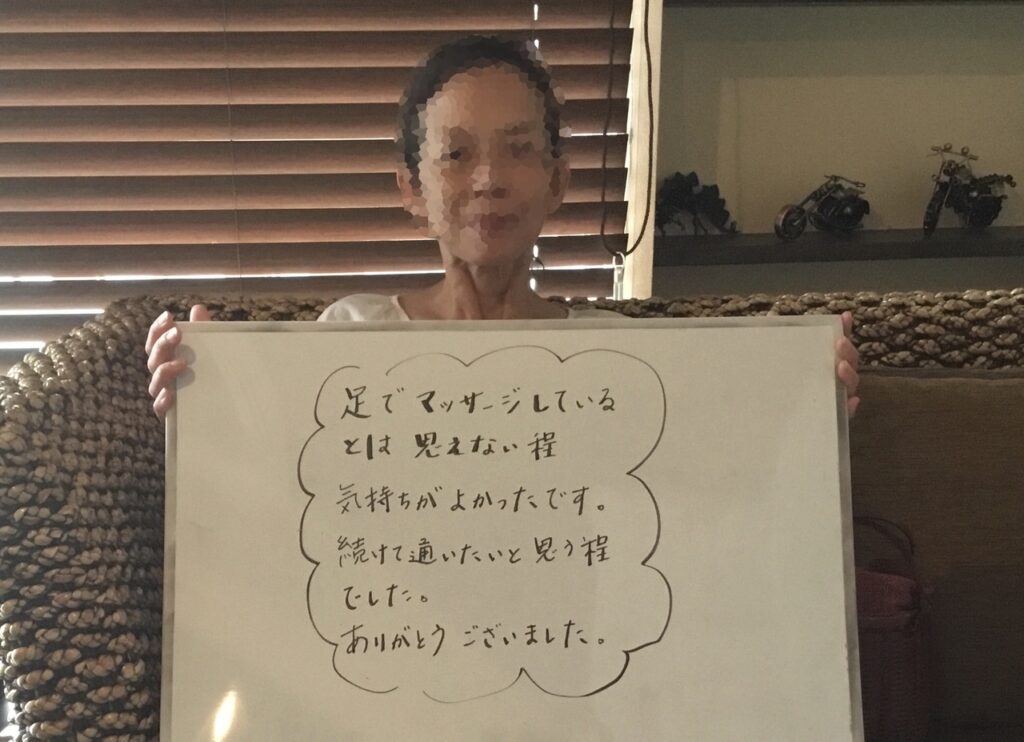 足でマッサージしている
とは思えない程
気持ちがよかったです。
続けて通いたいと思う程
でした。
ありがとうございました。